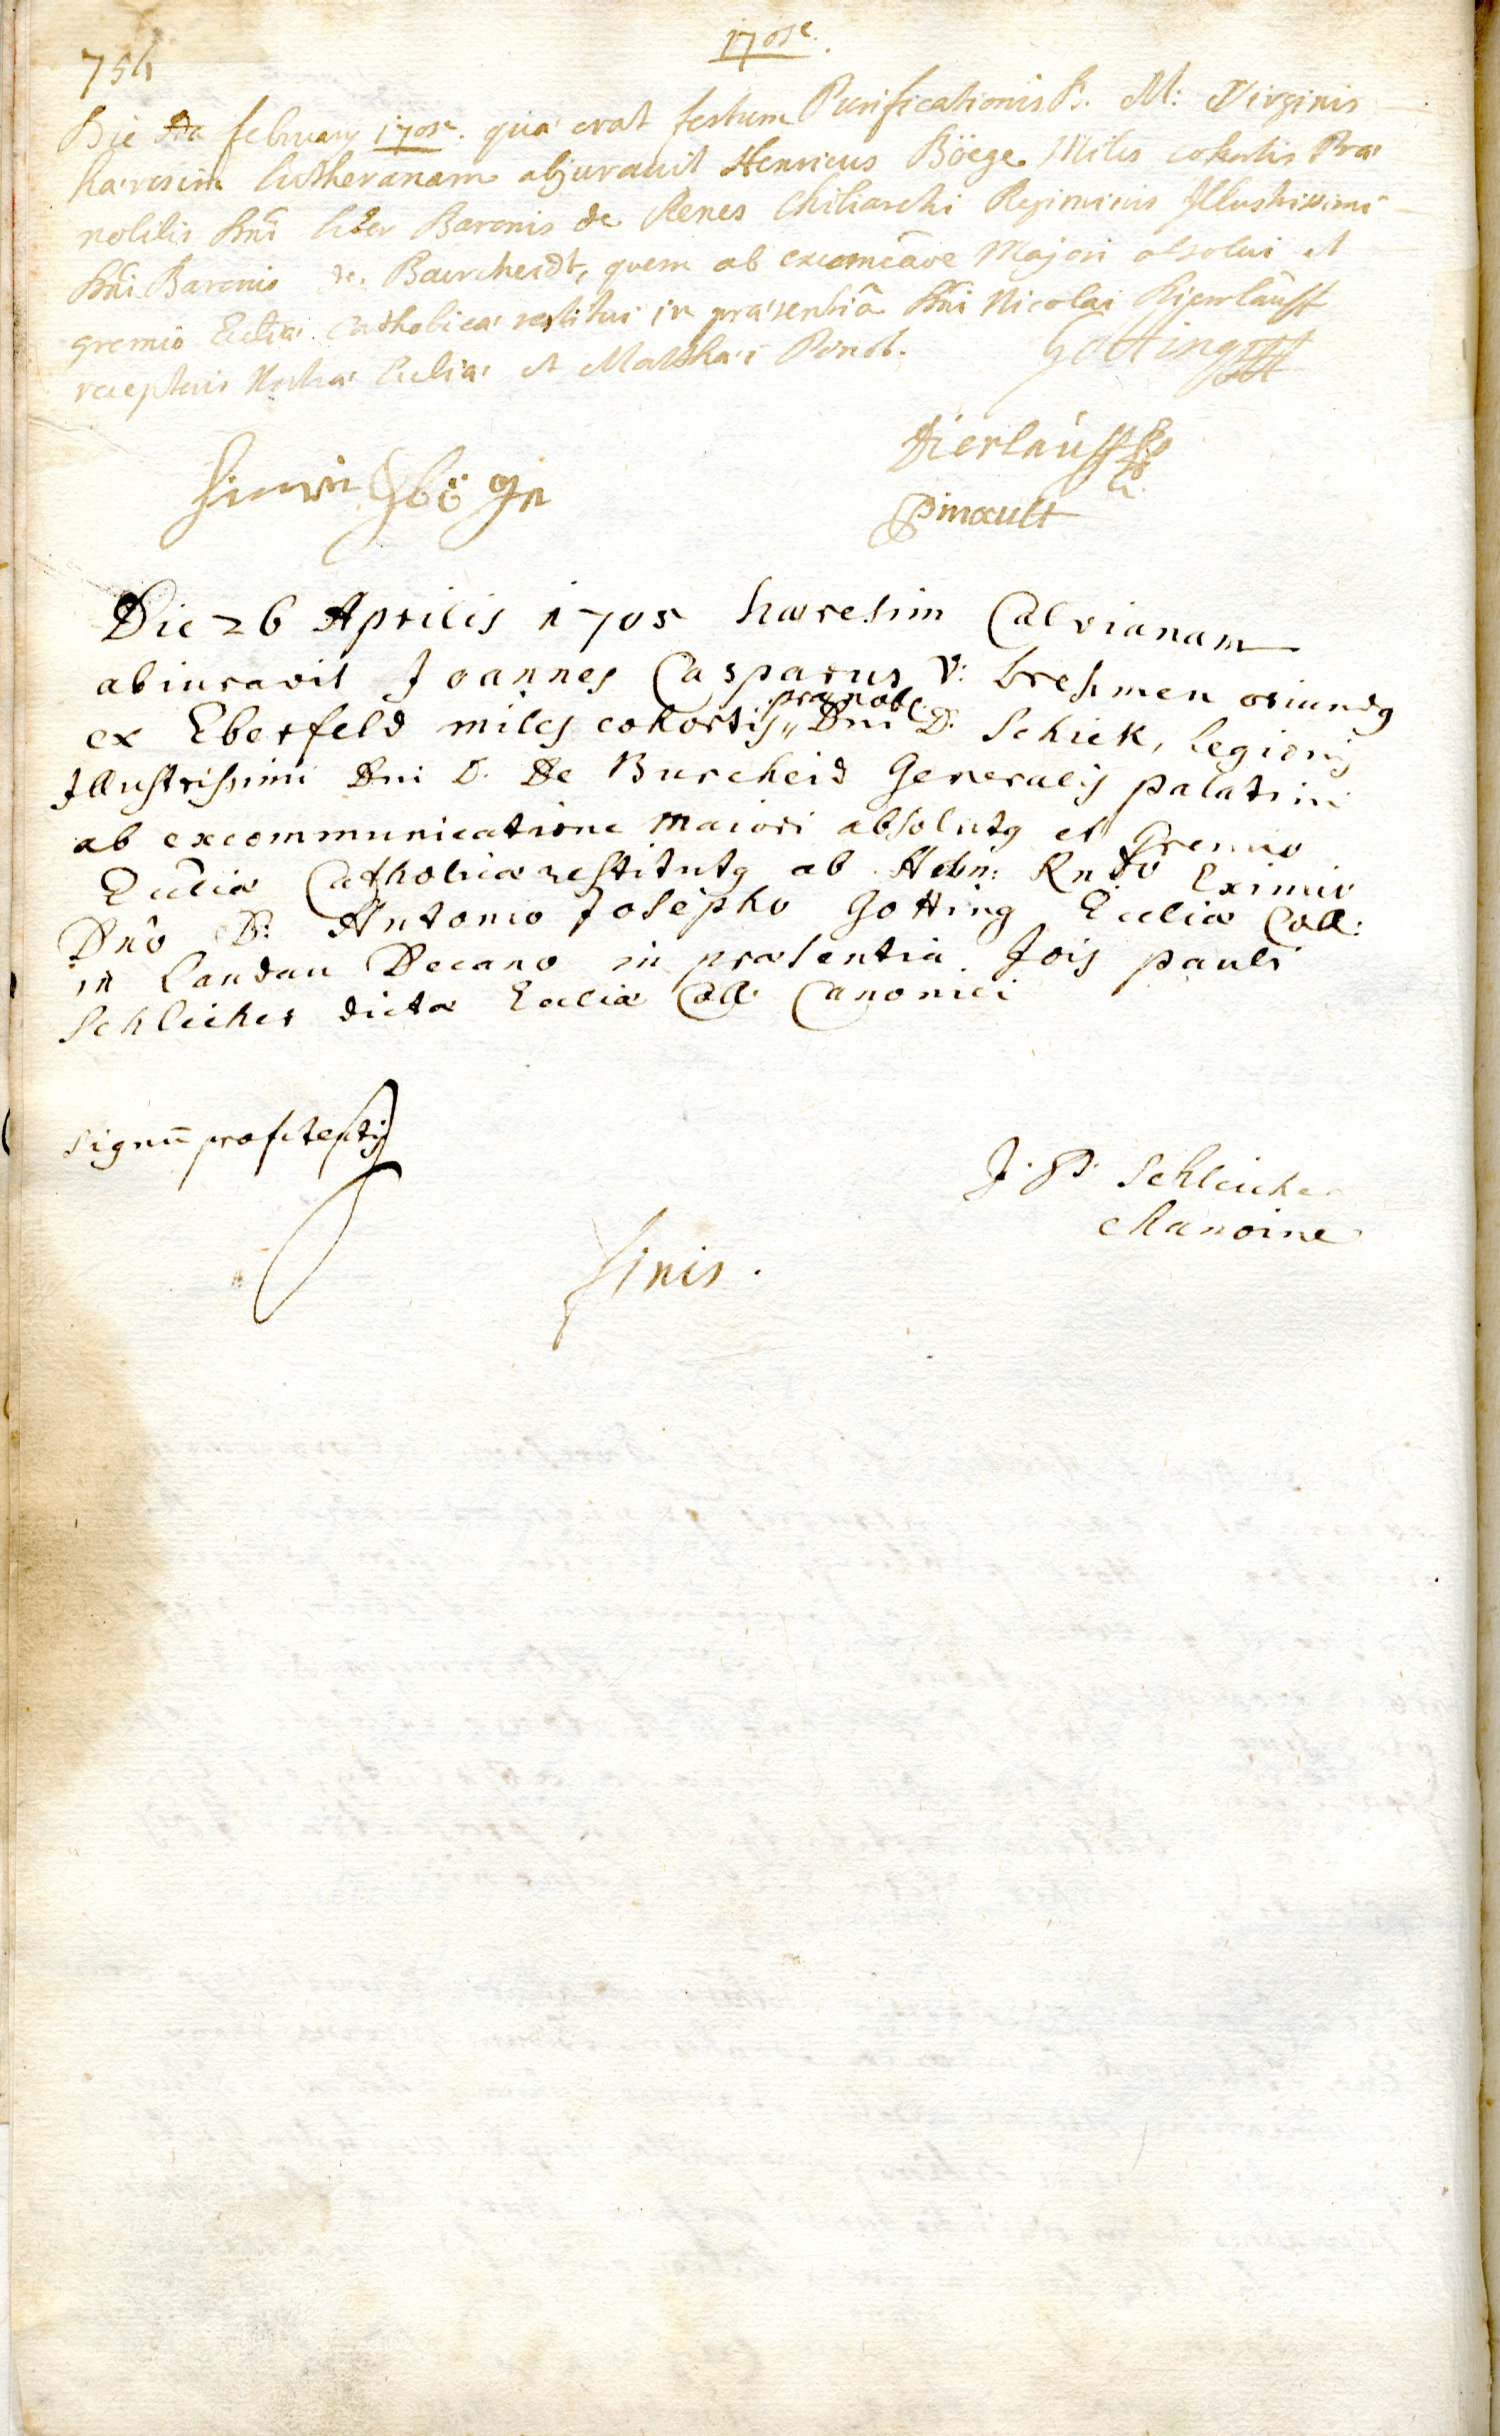 754
1705.
Die 2da february 1705. qua erat festum Purificationis B. M: Virginis
hæresim lutheranam abjuravit Henricus Böege Miles cohortis Præ
nobilis Dni liber Baronis de Renes Chiliarchi Regiminis Illustrissimi
Dni Baronis de Baurcheidt, quem ab excomcãoe Majori absolui et
gremio Eccliæ Catholicæ restitui in præsentiâ Dni Nicolai Dierlauff
receptoris Nostræ Eccliæ et Matthæi Pinot.
Gotting
Dierlauff
Hinrich böge
Pinault
Die 26 Aprilis 1705 hæresim Calvianam
abiuravit Joannes Casparus V: brehmen oriundg
ex Eberfeld miles cohortis prænobl. Dni D: Schick, legionis
Illustrissimi Dni D. De Burcheid Generalis palatini
ab excommunicatione maiori absolutg et Gremio
Eccliæ Catholicæ restitutg ab Rndo Eximio
Dno D: Antonio Josepho Gotting Eccliæ Coll:
in Landau Decano in præsentia Jois pauli
Schleicher dictæ Eccliæ Coll: Canonici
signū profitentis
J. P. Schleicher
chanoine
finis.